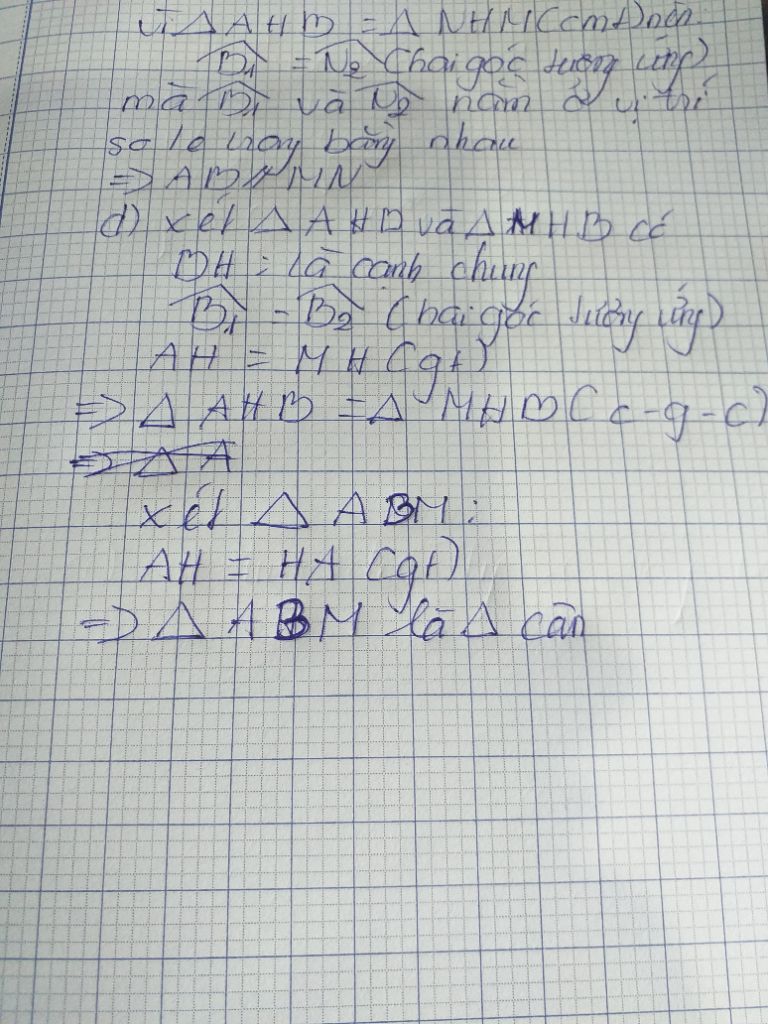 vì △ AHB = △ NHM (cmt) nên
B1 = N2 (hai góc tương ứng)
mà B1 và N2 nằm ở vị trí
so le trong bằng nhau
=> AB // MN
d) xét △ AHB và △ MHB có
BH : là cạnh chung
B1 = B2 (hai góc tương ứng)
AH = MH (gt)
=> △ AHB = △ MHB (c-g-c)
=> △ A
xét △ ABM :
AH = HA (gt)
=> △ ABM là △ cân